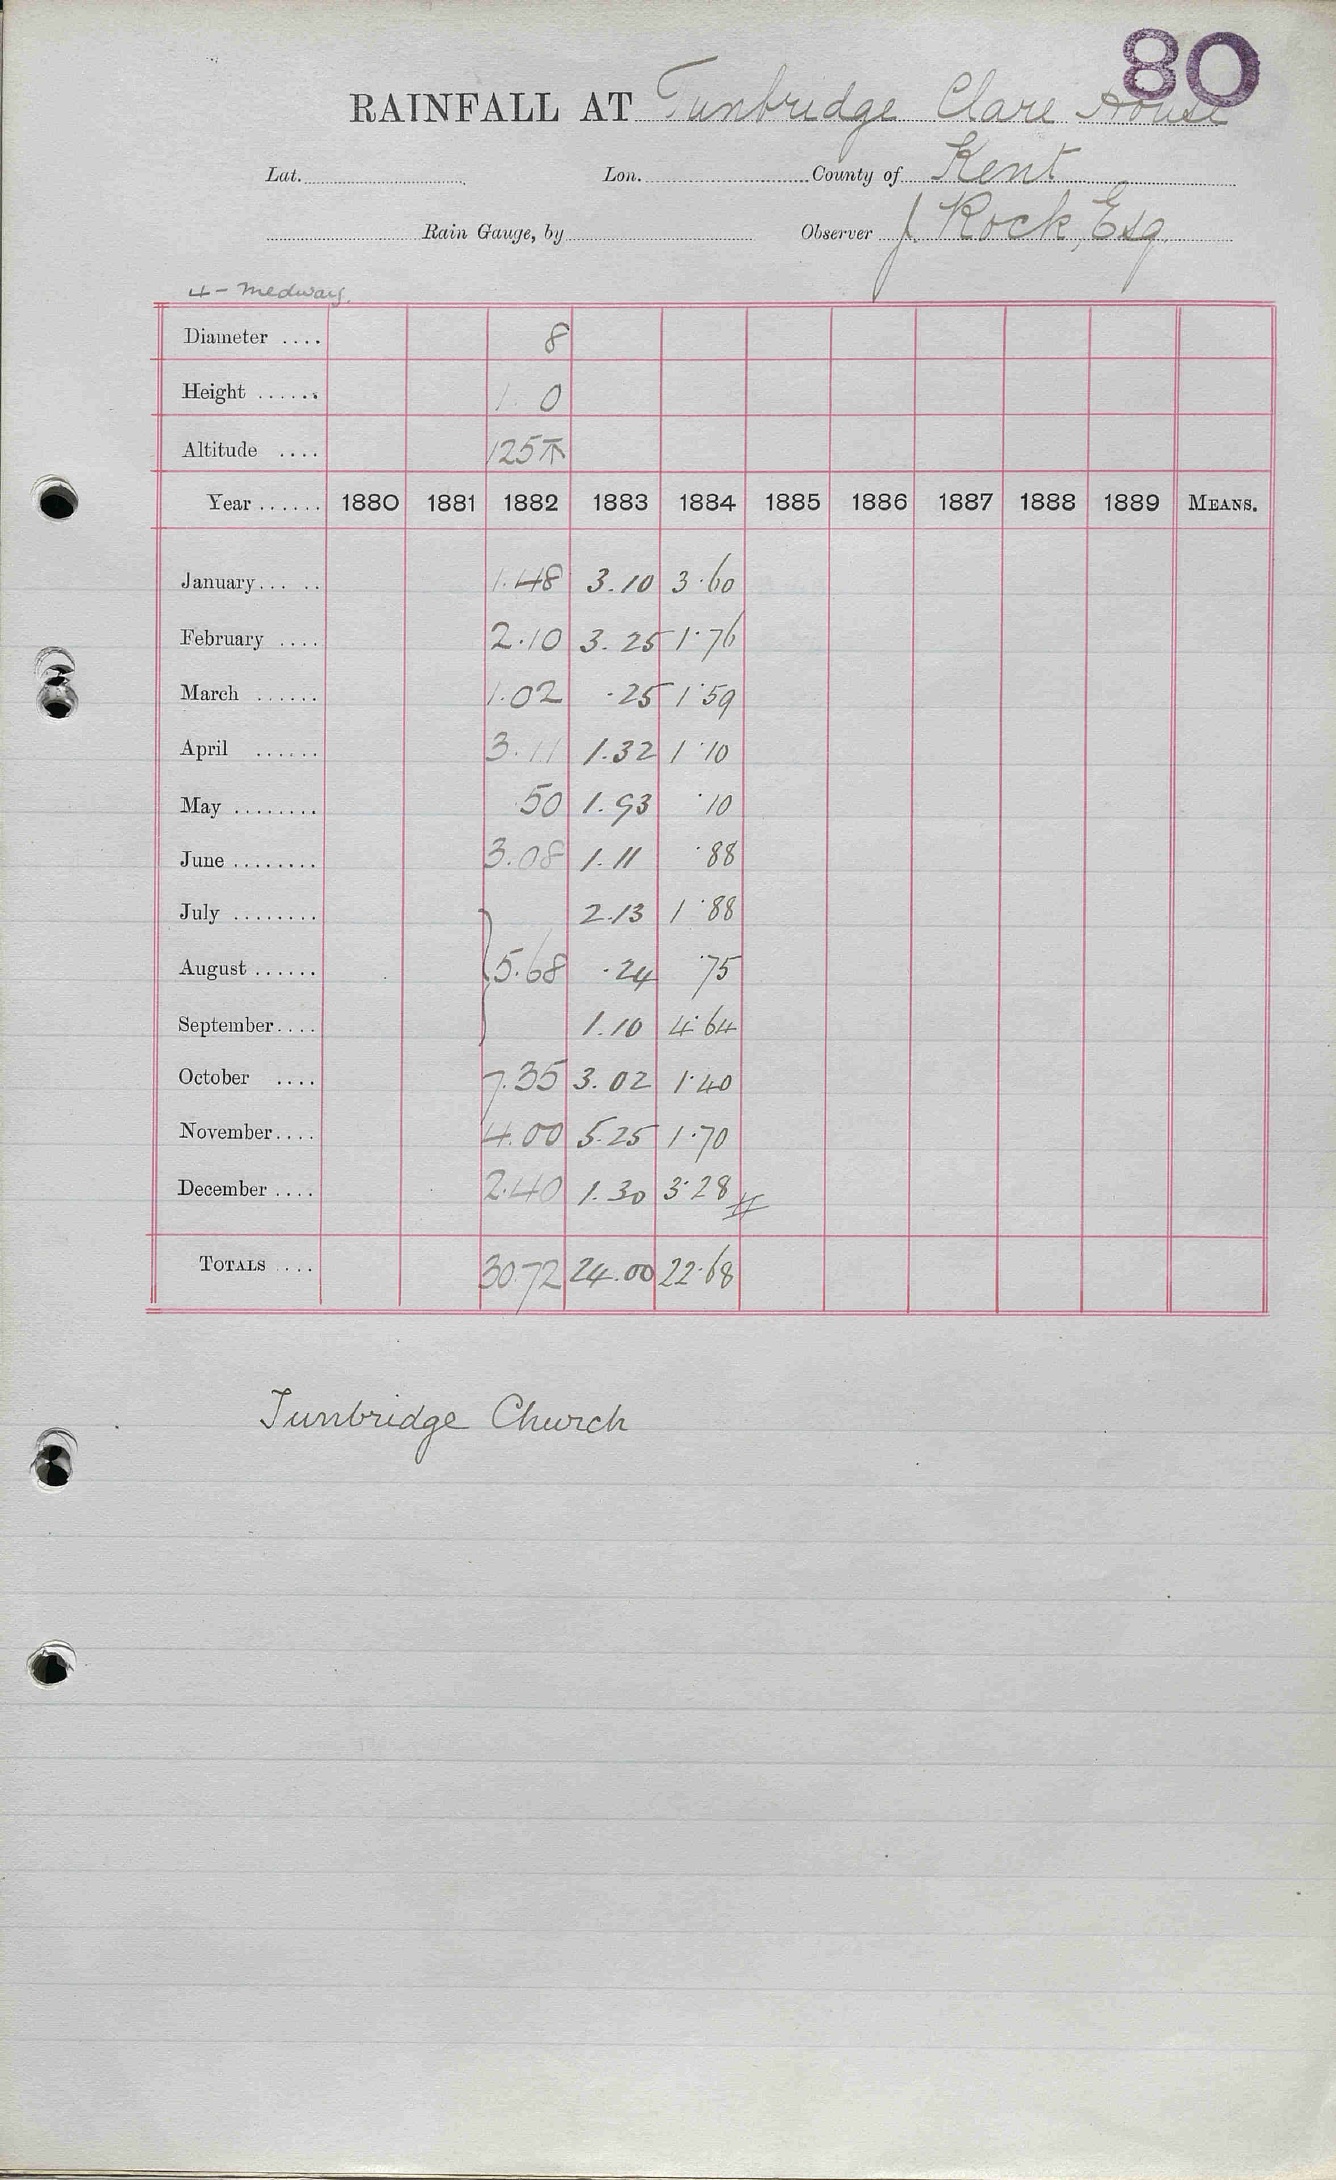 80
RAINFALL AT Tunbridge Clare House
Lat. Lon. County of Kent
Rain Gauge, by Observer J. Rock, Esq
4 - Medway.
Diameter .... 8
Height ...... 1 0
Altitude .... 125
Year ...... 1880 1881 1882 1883 1884 1885 1886 1887 1888 1889 MEANS.
January ... .. 1.48 3.10 3.60
February .... 2.10 3.25 1.76
March ...... 1.02 .25 1.59
April ...... 3.11 1.32 1.10
May ........ .50 1.93 .10
June ........ 3.08 1.11 .88
July ........ 2.13 1.88
August ...... } 5.68 .24 .75
September .... 1.10 4.64
October .... 7.35 3.02 1.40
November .... 4.00 5.25 1.70
December .... 2.40 1.30 3.28
TOTALS .... 30.72 24.00 22.68
Tunbridge Church